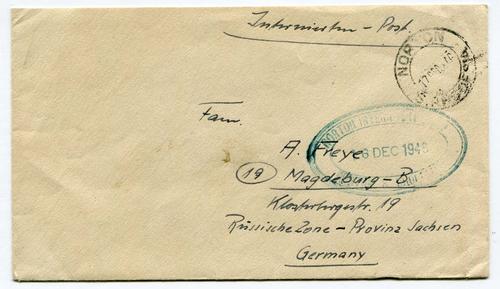 Internierten-Post
NORTON
Fam.
NORTON INTERNMENT
6 DEC 1946
A. Freye
(19) Magdeburg-B
Klosterbergestr. 19
Russische Zone - Provinz Sachsen
Germany